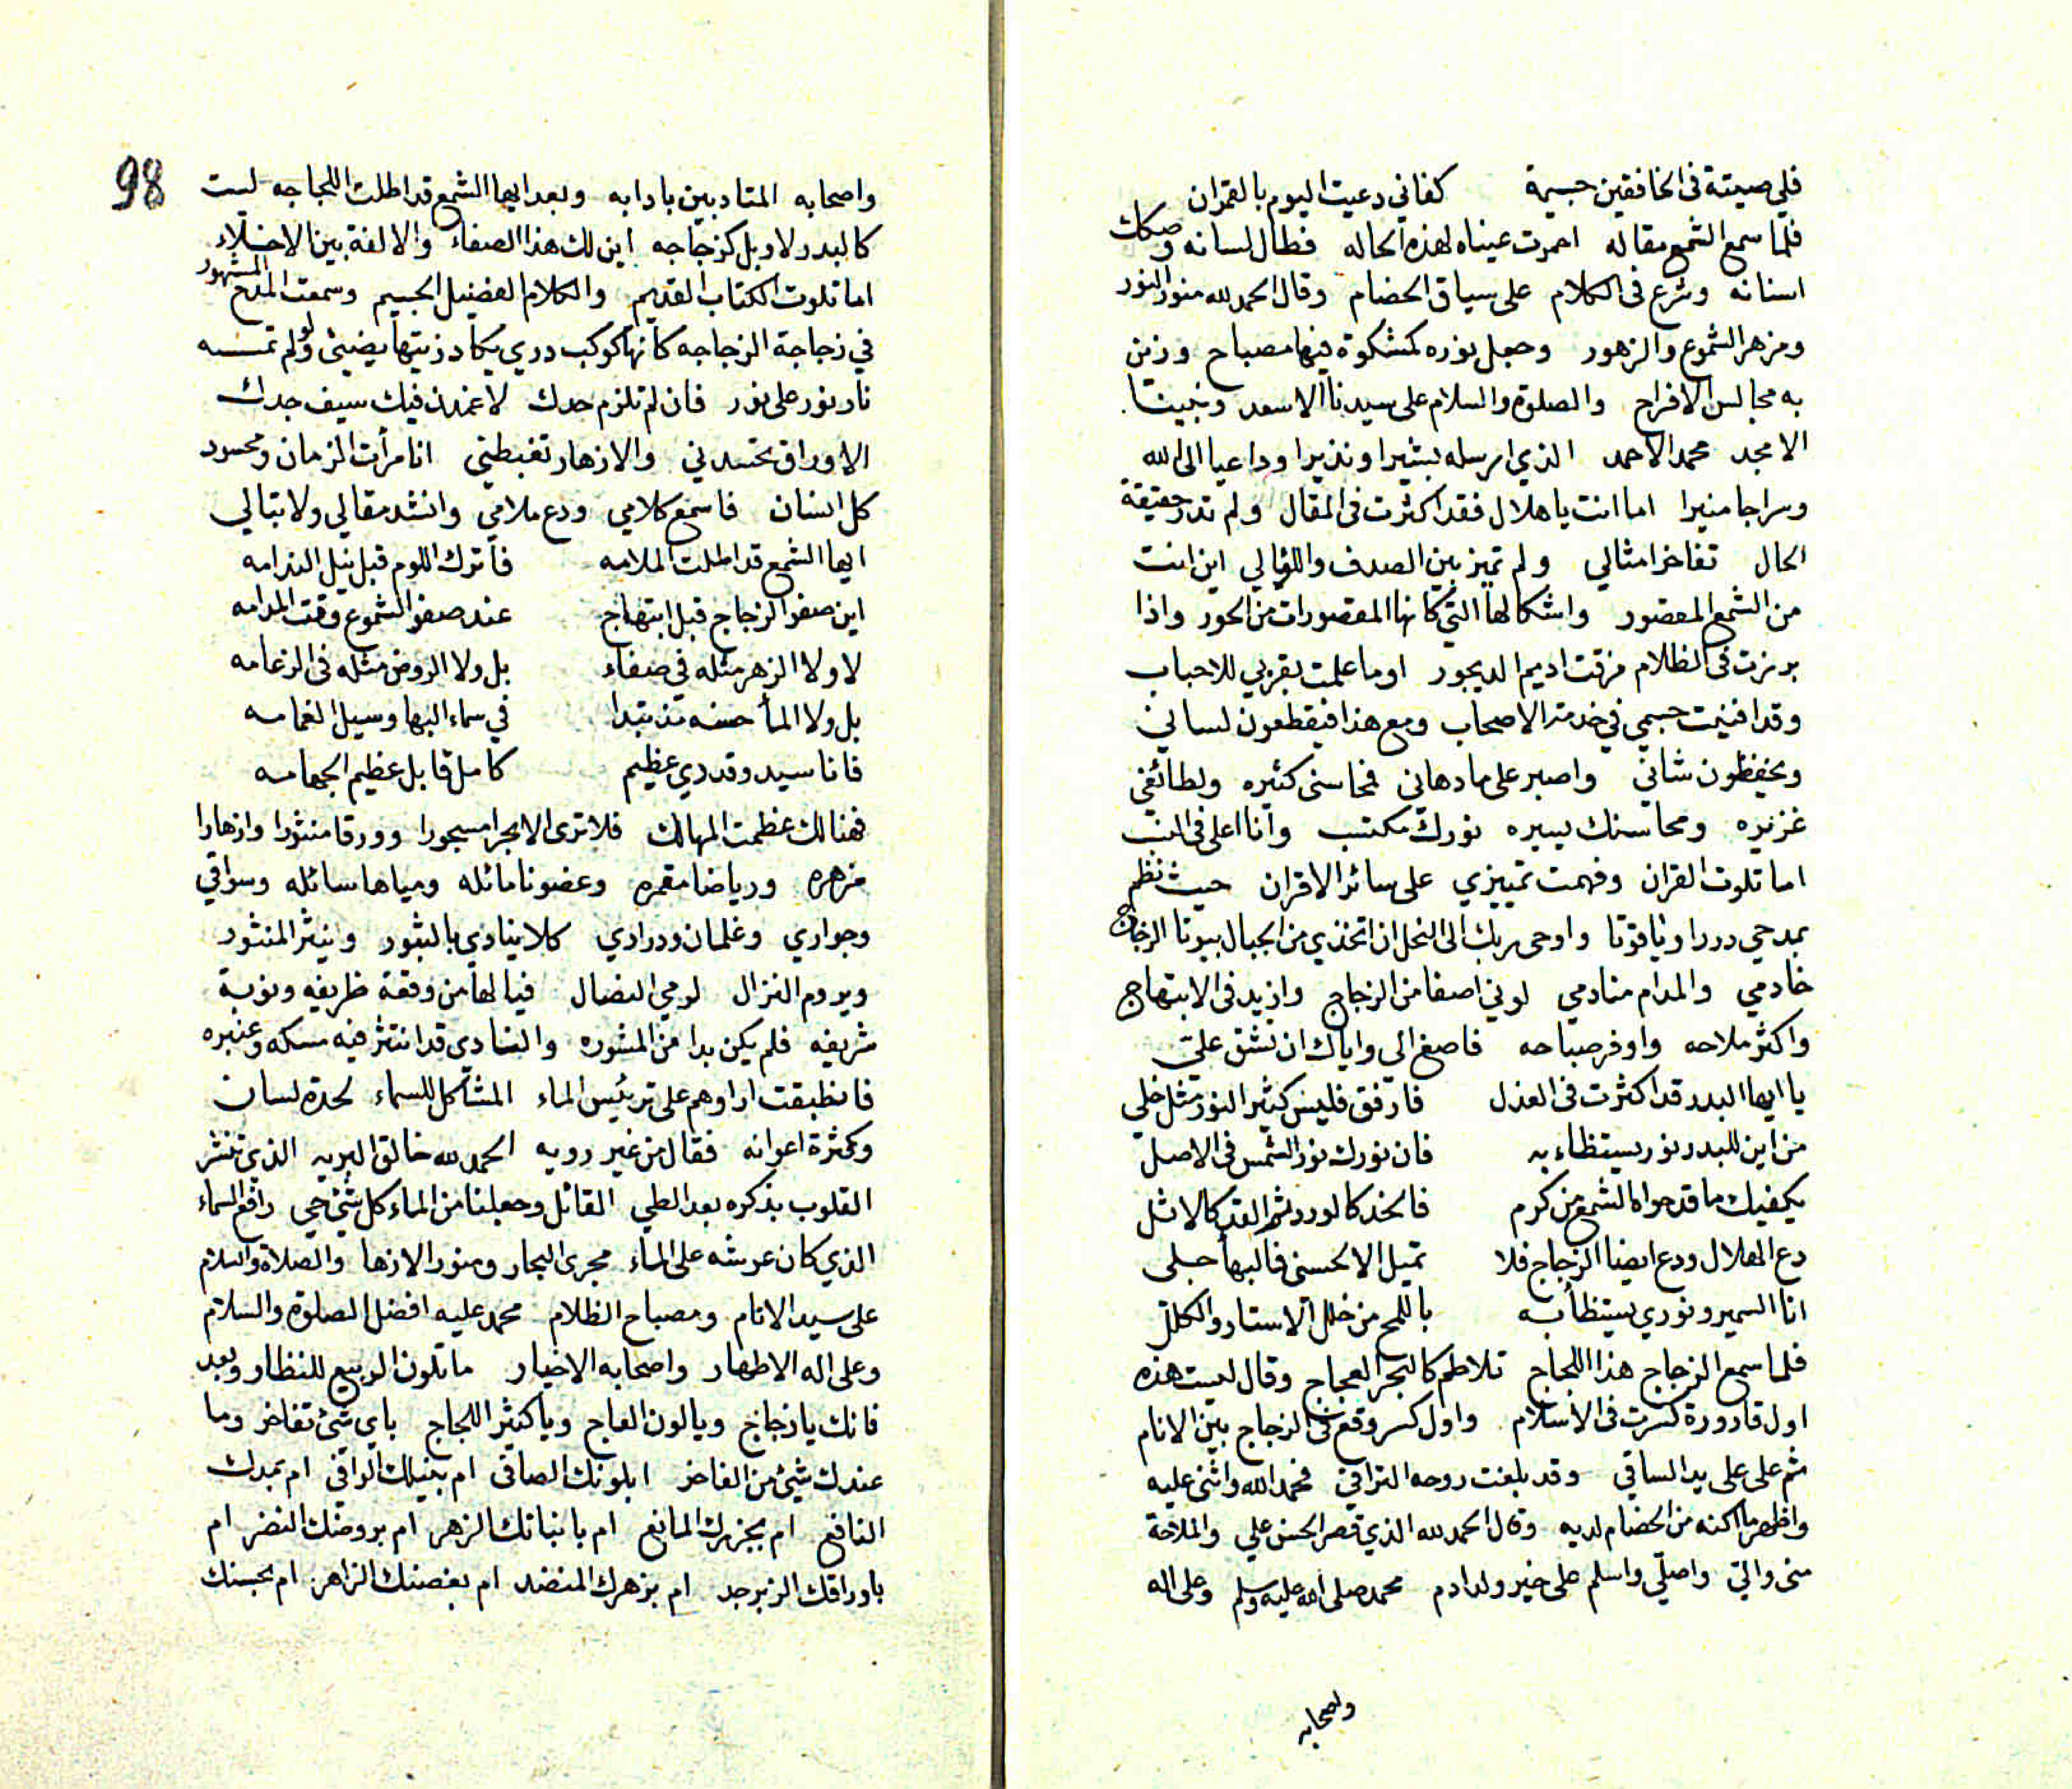 فلي صيته في الخافقين جسيمة كفاني دعيت اليوم بالقمران
فلما سمع الشمع مقاله احمرت عيناه لهذه الحاله فطال لسانه وصكات
اسنانه وشرع في الكلام على سياق الخصام وقال الحمد لله منور النور
ومزهر الشموع والزهور وجعل نوره كمشكوة فيها مصباح وزين
به مجالس الافراح والصلوة والسلام على سيدنا الاسعد ونبينا
الامجد محمد الاحمد الذي ارسله بشيرا ونذيرا وداعيا الى الله
وسراجا منيرا اما انت يا هلال فقد اكثرت في المقال ولم تدر حقيقة
الحال تفاخر امثالي ولم تميز بين الصدف واللؤالي اين انت
من الشمع المقصور واشكالها التي كانها المقصورات من الحور واذا
برزت في الظلام مزقت اديم الديجور اوما علمت بقربي للاحباب
وقد افنيت جسمي في خدمة الاصحاب ومع هذا فيقطعون لساني
ويخفظون شاني واصبر على ما دهاني فمحاسني كثيره ولطائفي
غزيره ومحاسنك يسيره نورك مكتسب وانا اعلى في
اما تلوت القران وفهمت تمييزي على سائر الاقران حيث نظم
بمدحي دررا وياقوتا واوحى ربك الى النحل ان اتخذي من الجبال بيوتا الزجاج
خادمي والمدام منادمي لوني اصفا من الزجاج وازيد في الابتهاج
واكثر ملاحه واوفر صباحه فاصغ الي واياك ان تشق علي
يا ايها البدر قد اكثرت في العذل فارفق فليس كثير النور مثل خلي
من اين للبدر نور يستظاء به فان نورك نور الشمس في الاصل
يكفيك ما قد حواه الشمع من كرم فالخد كالورد ثم القد كالاثل
دع الهلال ودع ايضا الزجاج فلا تميل الا لحسني فالبها جلى
انا السمير ونوري يستظأ به باللمح من خلل الاستار والكلل
فلما سمع الزجاج هذا اللجاج تلاطم كالبحر العجاج وقال ليست هذه
اول قارورة كسرت في الاسلام واول كسر وقع في الزجاج بين الانام
ثم على على يد الساقي وقد بلغت روحه التراقي فحمد الله واثنى عليه
واظهر ما اكنه من الخصام لديه وقال الحمد لله الذي قصر الحسن علي والملاحة
منى والتي واصلي واسلم على خير ولد ادم محمد صلى الله عليه وسلم وعلى اله
واصحابه
98
واصحابه المتادبين بادابه وبعد ايها الشمع قد اطلت اللجاجه لست
كالبدر لا وبل كزجاجه اين لك هذا الصفاء والالفة بين الاخلاء
اما تلوت الكتاب القديم والكلام الفضيل الجسيم وسمعت المدح المشهور
في زجاجة الزجاجه كانها كوكب دري يكاد زيتها يضيئ ولو لم تمسسه
نار نور على نور فان لم تلزم حدك لاغمدن فيك سيف جدك
الاوراق تحتسدني والازهار تغبطني انا مرأت الزمان ومحسود
كل انسان فاسمع كلامي ودع ملامي وانشد مقالي ولا تبالي
ايها الشمع قد اطلت الملامه فاترك اللوم قبل نيل الندامه
اين صفو الزجاج قبل ابتهاج عند صفو الشموع وقت المدامه
لا ولا الزهر مثله في صفاء بل ولا الروض مثله في الزعامه
بل ولا المأ حسنه تبدا في سماء البها وسيل الغمامه
فانا سيد وقدري عظيم كامل قابل عظيم الجهامه
فهنالك عظمت المهالك فلا ترى الا بحرا مسجورا وورقا منثورا وازهارا
مزهره ورياضا مقمره وغصونا مائله ومياها سائله وسواقي
وجواري وغلمان ودراري كلا ينادي بالثبور وينثر المنثور
ويروم النزال لومي النضال فيا لها من وقعة ظريفه ونوبة
شريفه فلم يكن بدا من المشوره والنادي قد انتثر فيه مسكه وعنبره
فانطبقت اراوهم على ترئيس الماء المشاكل للسماء لحدة لسانه
وكثرة اعوانه فقال من غير رويه الحمد لله خالق البريه الذي تنشر
القلوب بذكره بعد الطي القائل وجعلنا من الماء كل شيئ حي رافع السماء
الذي كان عرشه على الماء مجرى البحار ومنور الازها والصلاة والسلام
على سيد الانام ومصباح الظلام محمد عليه افضل الصلوة والسلام
وعلى اله الاطهار واصحابه الاخيار ما تلون الربيع للنظار وبعد
فانك يا زجاج ويا لون العاج ويا كثير اللجاج باي شئ تفاخر وما
عندك شيئ من الفاخر ابلونك الصافي ام بنيلك الراقي ام بمدك
النافع ام بجزرك المانع ام بانباتك الزهر ام بروضك النضر ام
باوراقك الزبرجد ام بزهرك المنضد ام بغصنك الزاهر ام بحسنك